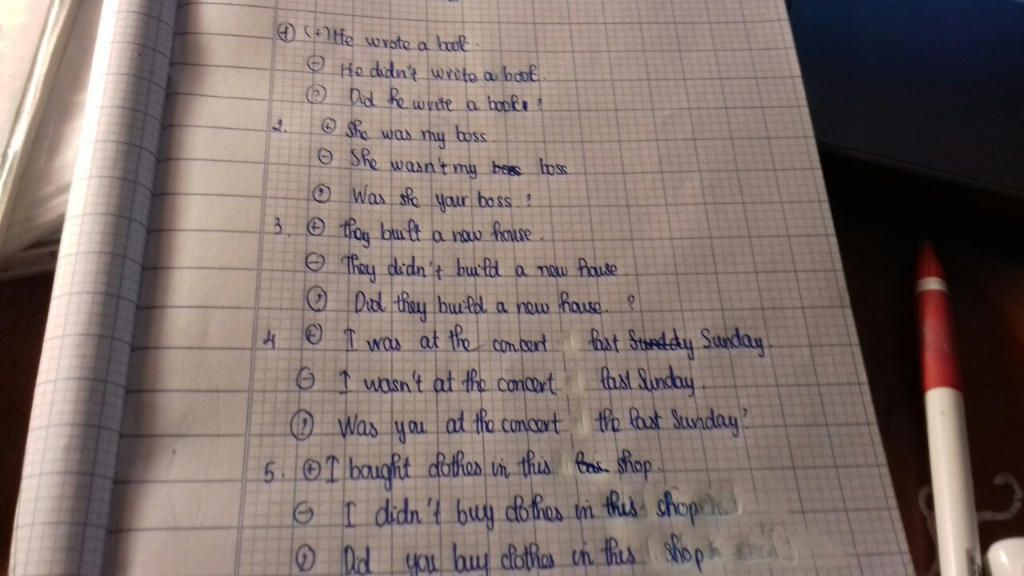 1) (+) He wrote a book.
(-) He didn't write a book.
(?) Did he write a book?
2. (+) She was my boss
(-) She wasn't my boss
(?) Was she your boss?
3. (+) they built a new house.
(-) They didn't build a new house
(?) Did they build a new house. ?
4 (+) I was at the concert last Sunday.
(-) I wasn't at the concert last Sunday.
(?) Was you at the concert the last Sunday?
5. (+) I bought clothes in this shop.
(-) I didn't buy clothes in this shop
(?) Did you buy clothes in this shop